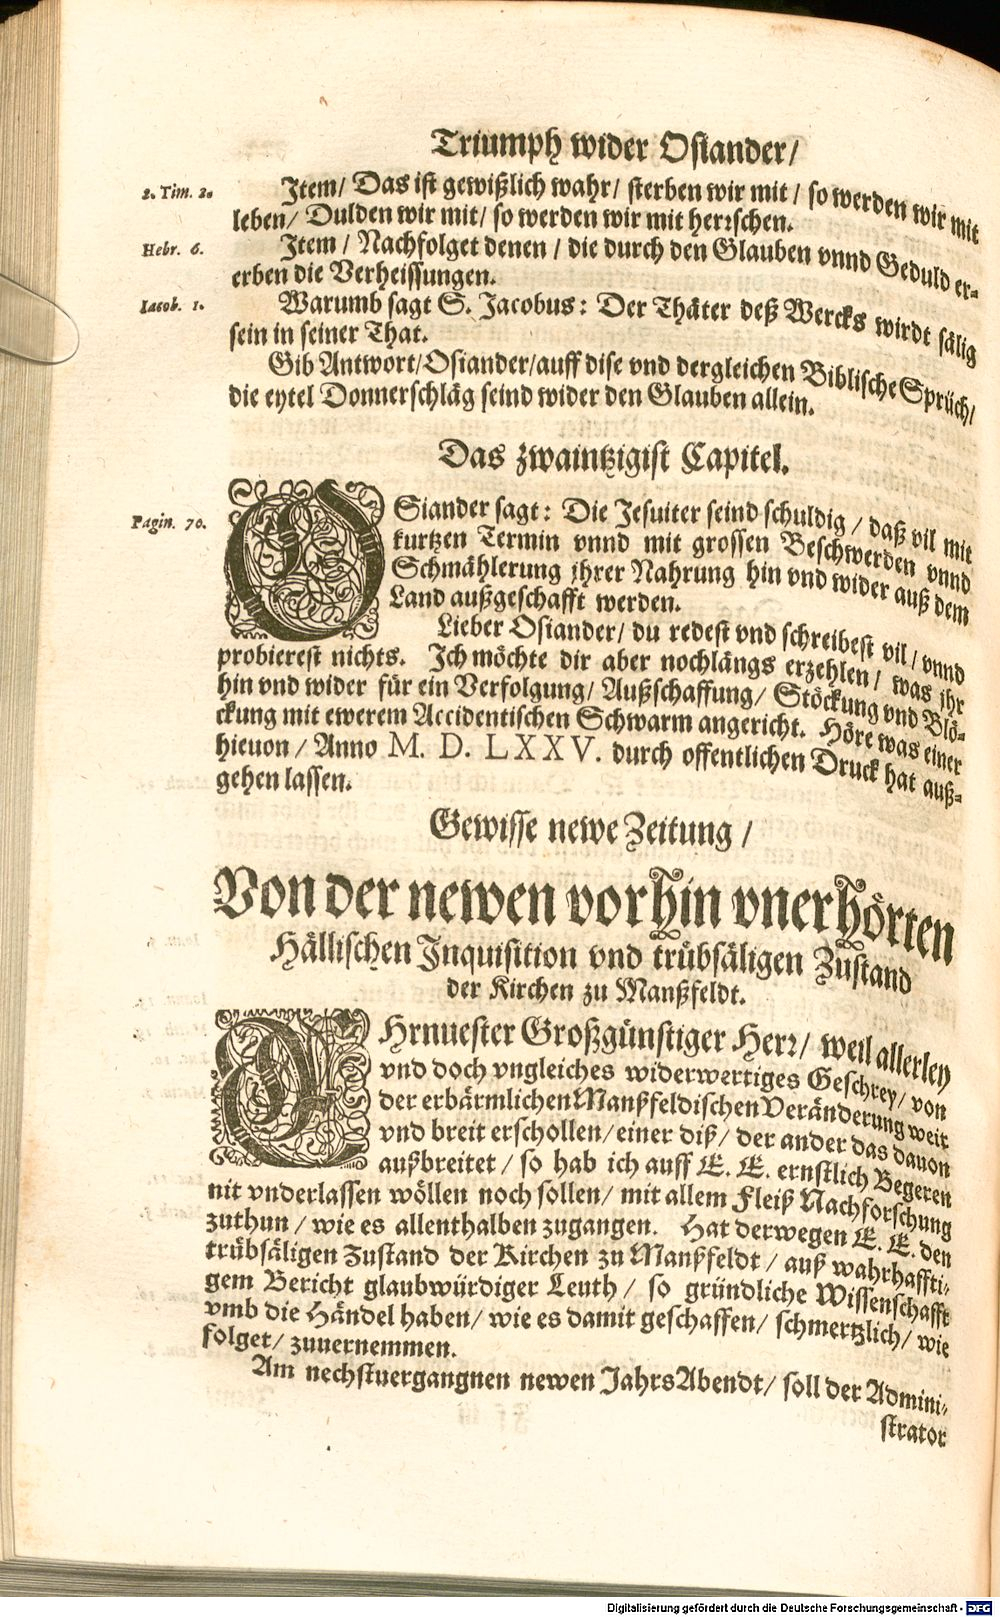 Triumph wider Osiander/
2. Tim. 2.
Item/ Das ist gewißlich wahr/ sterben wir mit / so werden wir mit
leben/ Dulden wir mit/ so werden wir mit herrschen.
Hebr. 6.
Item / Nachfolget denen / die durch den Glauben vnnd Geduld er-
erben die Verheissungen.
Iacob. 1.
Warumb sagt S. Jacobus: Der Thäter deß Wercks wirdt sälig
sein in seiner That.
Gib Antwort/Osiander/auff dise vnd dergleichen Biblische Sprüch/
die eytel Donnerschläg seind wider den Glauben allein.
Das zwaintzigist Capitel.
Pagin. 70.
OSiander sagt: Die Jesuiter seind schuldig / daß vil mit
kurtzen Termin vnnd mit grossen Beschwerden vnnd
Schmählerung jhrer Nahrung hin vnd wider auß dem
Land außgeschafft werden.
Lieber Osiander/ du redest vnd schreibest vil / vnnd
probierest nichts. Ich möchte dir aber nochlängs erzehlen / was jhr
hin vnd wider für ein Verfolgung/ Außschaffung/ Stöckung vnd Blö-
ckung mit ewerem Accidentischen Schwarm angericht. Höre was einer
hieuon / Anno M. D. LXXV. durch offentlichen Druck hat auß-
gehen lassen.
Gewisse newe Zeitung /
Von der newen vorhin vnerhörten
Hällischen Inquisition vnd trübsäligen Zustand
der Kirchen zu Manßfeldt.
EHrnuester Großgünstiger Herr/ weil allerley
vnd doch vngleiches widerwertiges Geschrey/ von
der erbärmlichen Manßfeldischen Veränderung weit
vnd breit erschollen/ einer diß/ der ander das dauon
außbreitet / so hab ich auff E. E. ernstlich Begeren
nit vnderlassen wöllen noch sollen/ mit allem Fleiß Nachforschung
zuthun / wie es allenthalben zugangen. Hat derwegen E. E. den
trübsäligen Zustand der Kirchen zu Manßfeldt / auß wahrhaffti-
gem Bericht glaubwürdiger Leuth / so gründliche Wissenschafft
vmb die Händel haben/ wie es damit geschaffen/ schmertzlich/ wie
folget/ zuuernemmen.
Am nechstuergangnen newen Jahrs Abendt/ soll der Admini-
strator
Digitalisierung gefördert durch die Deutsche Forschungsgemeinschaft - DFG